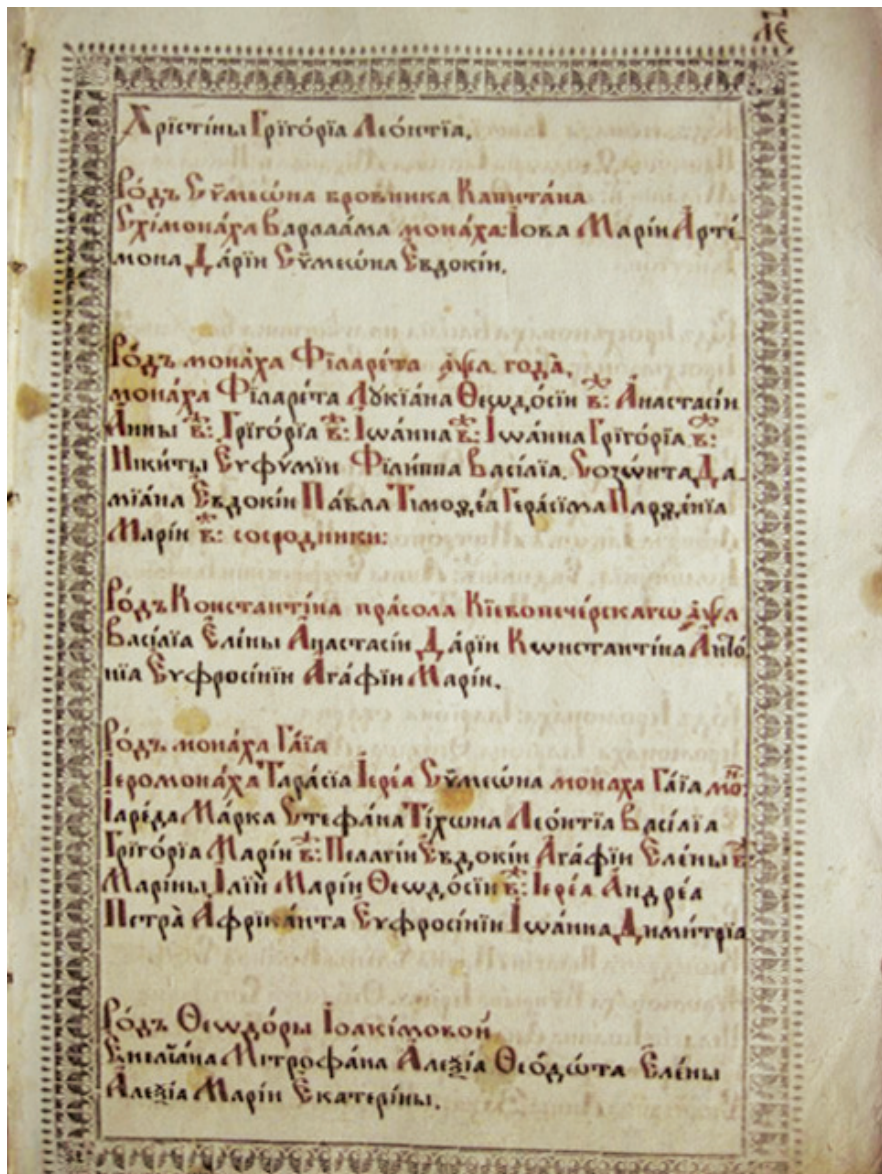 л҃е
Хрїсті́ны Грїго́рїа Лео́нтїа.
Ро́дъ Сѷмеѡ́на бровника Капита́на
Схимона́ха Варлаа́ма мона́ха: Іова Марі́и Арте́-
мона Да́рїи Сѷмеѡ́на Евдокі́и.
Ро́дъ мона́ха Фїларе́та ҂аѱл года̀.
мона́ха Фїларе́та Лꙋкїа́на Ѳеѡдо́сїи в҃: Анастасі́и
А́нны в҃: Грїго́рїа в҃: Іѡа́нна в҃: Іѡа́нна Грїго́рїа в҃:
Ники́ты Еѵфѵ́мїи Фїли́ппа Васі́лїа. Созѡ́нта Да-
мїа́на Евдокі́и Па́вла Тїмоѳе́а Гера́сїма Парѳе́нїа
Марі́и в҃: сосродники:
Ро́дъ Константі́на пра́сола Кїевопече́рскагѡ ҂аѱл
Васі́лїа Еле́ны Анастасі́и Да́рїи Кѡнстанті́на Анто́-
нїа Еѵфросі́нїи Ага́фїи Марі́и.
Ро́дъ мона́ха Га́їа
Іеромона́ха Тара́сїа Іере́а Сѷмеѡ́на монаха Га́їа мо:
Іаре́да Ма́рка Стефа́на Ті́хѡна Лео́нтїа Васі́лїа
Грїго́рїа Марі́и в҃: Пелагі́и Евдокі́и Ага́фїи Еле́ны в҃:
Марі́ны Ілїѝ Марі́и Ѳеѡдо́сїи в҃: Іере́а Андре́а
Петра̀ Афрїка́нта Еѵфросі́нїи Іѡа́нна Дими́трїа
Ро́дъ Ѳеѡдо́ры Іоакі́мовой
Емелїа́на Мїтрофа́на Алеѯі́а Ѳео́дѡта Еле́ны
Алеѯі́а Марі́и Екатери́ны.